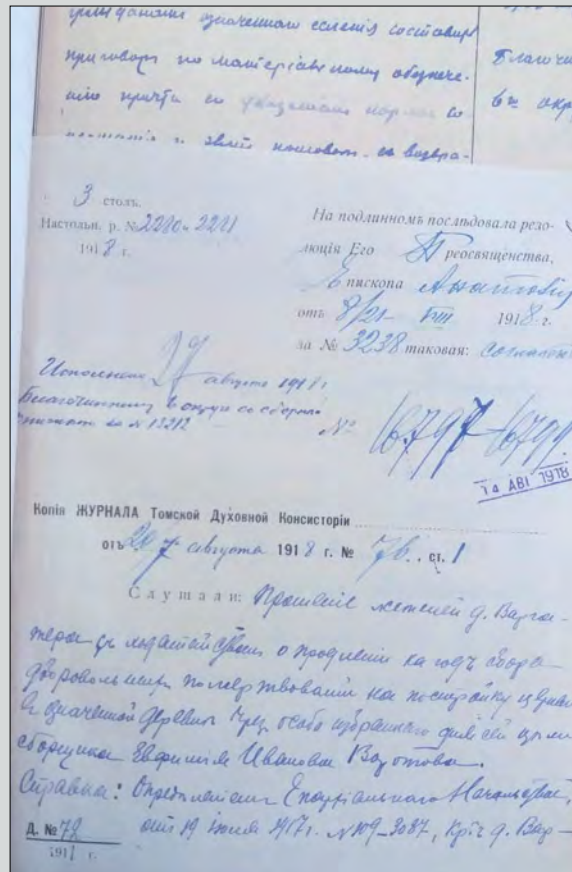 гражданами означеннаго селенія составить
приговоръ по матеріальному обезпече-
нію причта
Благочин
3 столъ.
Настольн. р. № 2220-2221
1918 г.
На подлинномъ послѣдовала резо-
люція Его Преосвященства,
Епископа Анатолія
отъ 8/21 VIII 1918 г.
за № 3238 таковая:
Исполнено 27 августа 1918 г.
Благочинному округа со сборной
№ 13212
№ 16797-16799
14 АВГ 1918
Копія ЖУРНАЛА Томской Духовной Консисторіи
отъ августа 1918 г. № 76, ст. 1
Слушали: Прошеніе жителей д.
о продленіи на годъ сбора
добровольныхъ пожертвованій на постройку церкви
въ означенной деревнѣ чрез особо избраннаго для сей цѣли
сборщика Евфимія Иванова
Справка: Опредѣленіемъ Епархіальнаго Начальства,
отъ 19 іюля 1917 г. № 109-3087, д. Вар-
Д. № 78
191 г.